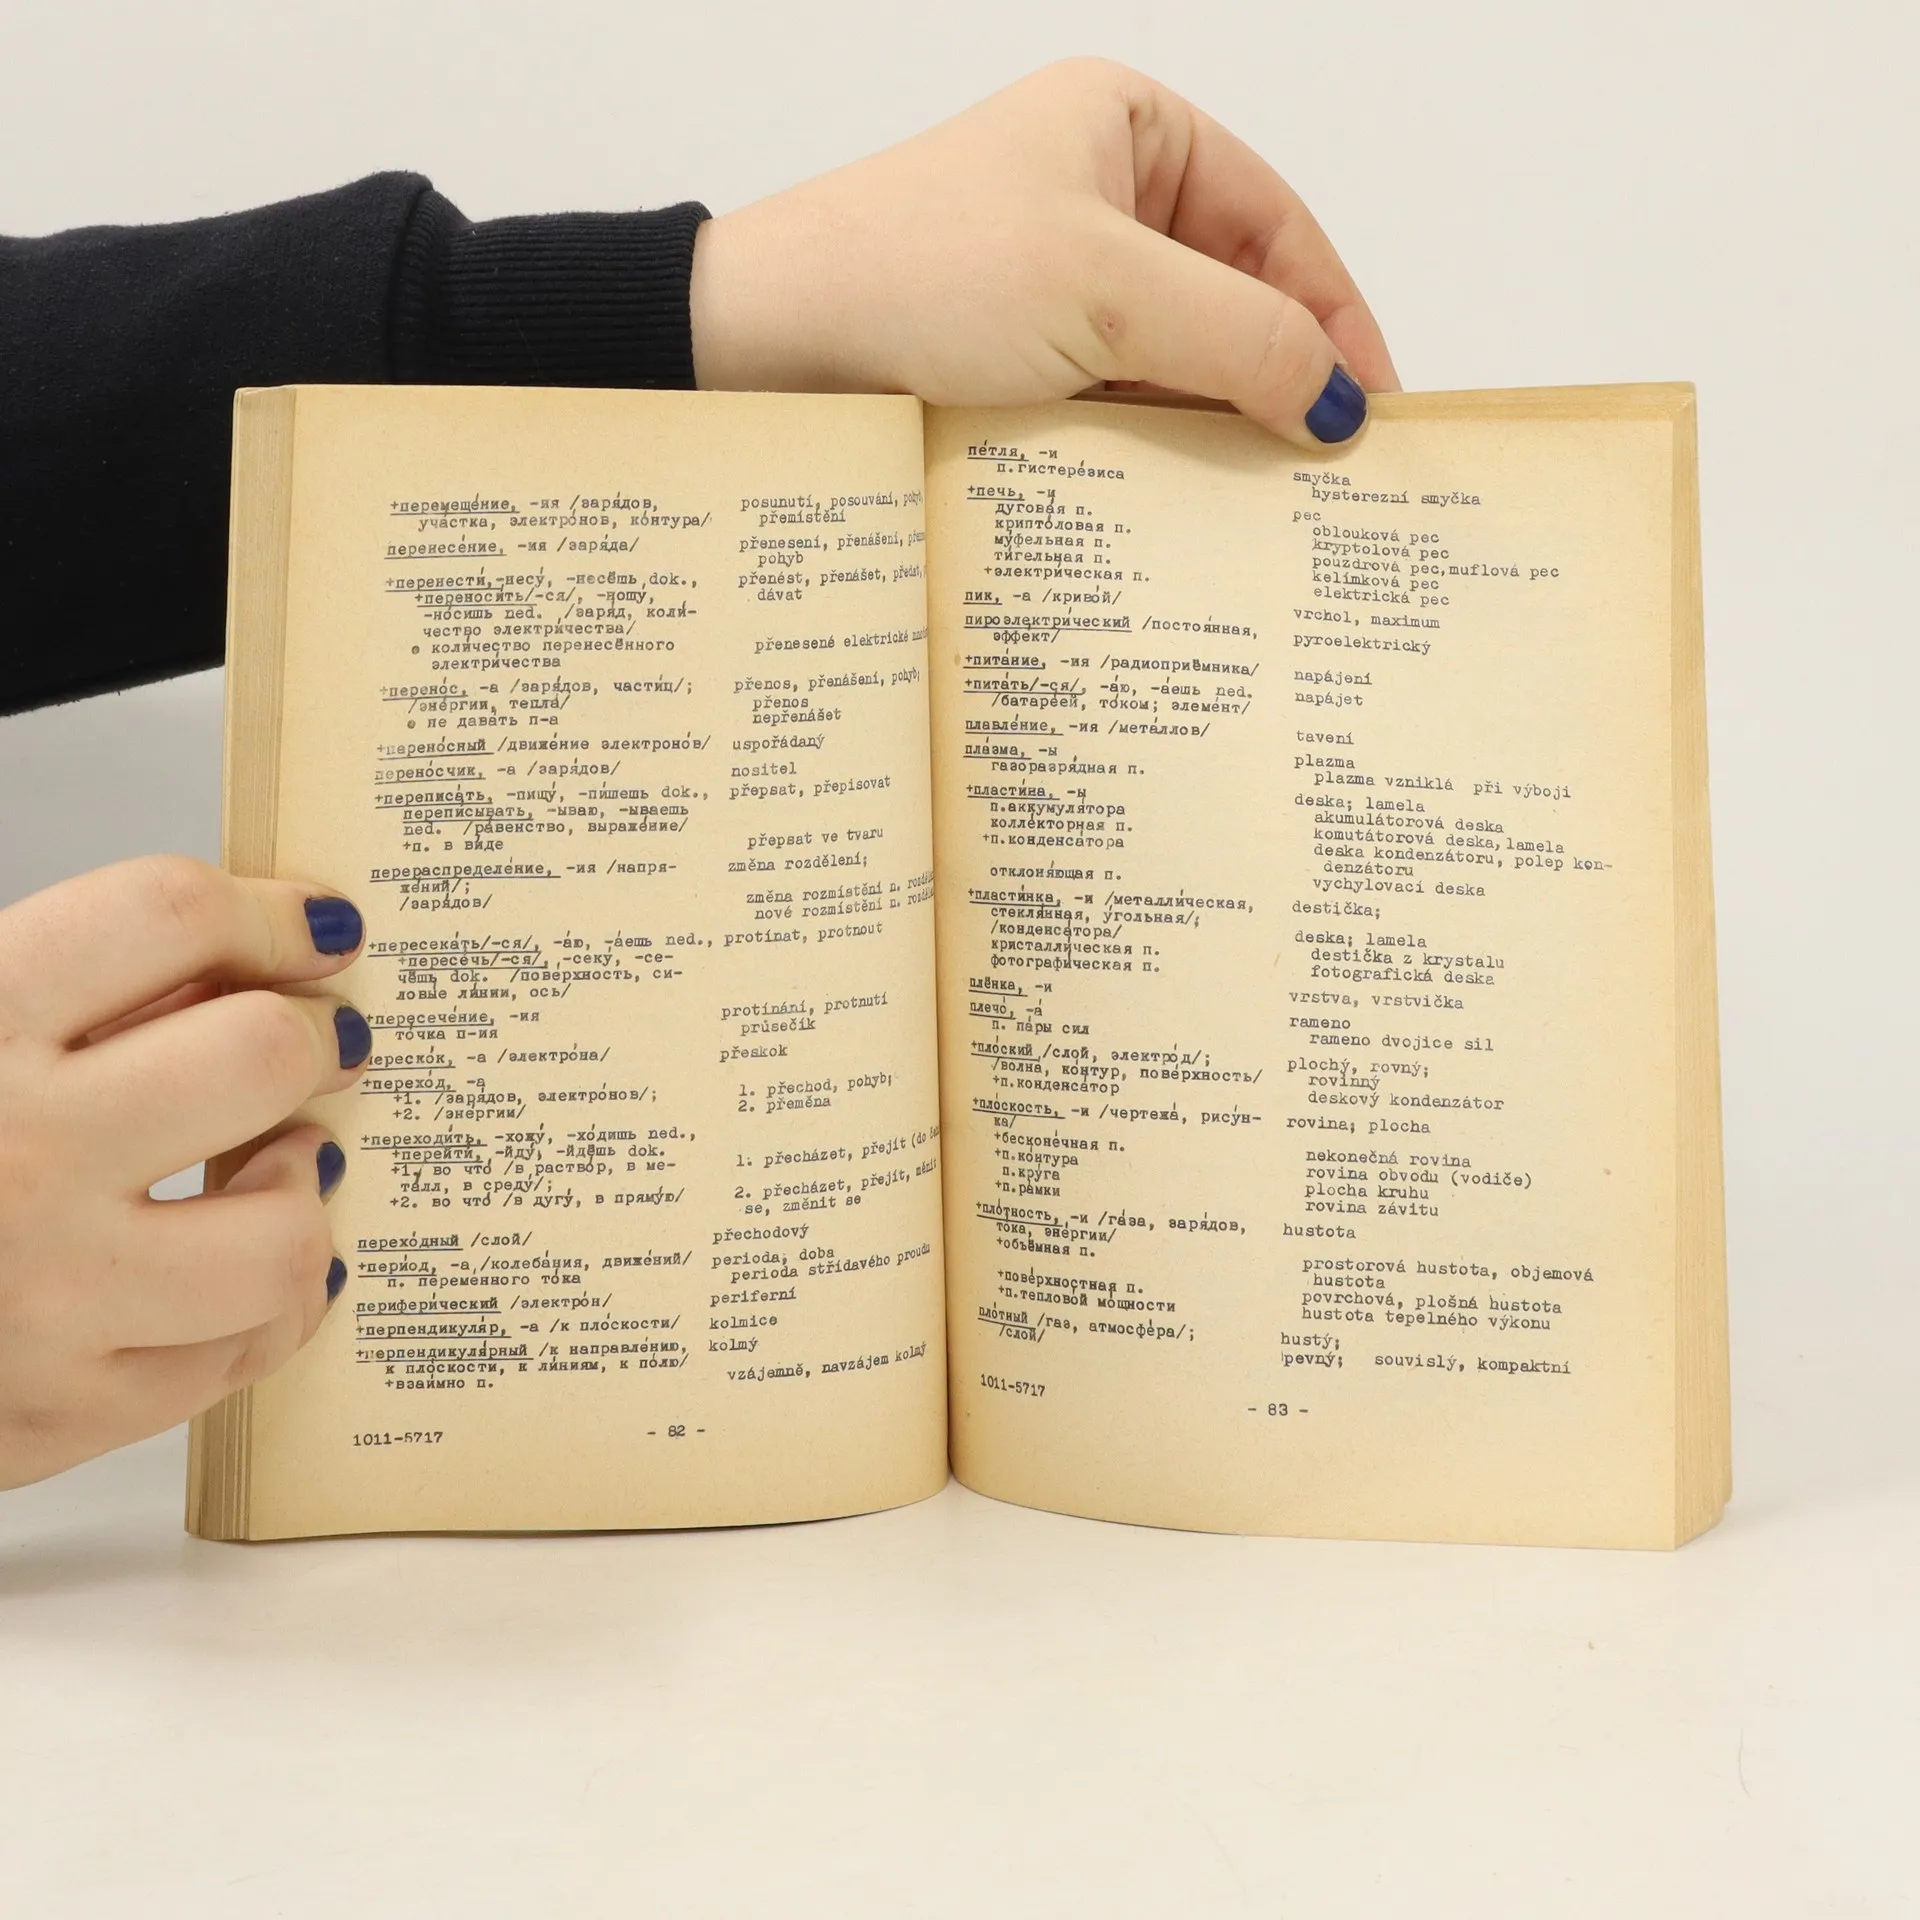 +перемеще́ние, -ия /заря́дов, posunutí, posouvání,
уча́стка, электро́нов, ко́нтура/ přemístění
перенесе́ние, -ия /заря́да/ přenesení, přenášení,
pohyb
+перенести́,-несу́, -несёшь dok., přenést, přenášet,
+переноси́ть/-ся/, -ношу́, dávat
-но́сишь ned. /заря́д, коли́-
чество электри́чества/
● коли́чество перенесённого přenesené elektrické
электри́чества
+перено́с, -а /заря́дов, части́ц/; přenos, přenášení, pohyb;
/эне́ргии, тепла́/ přenos
● не дава́ть п-а nepřenášet
+перено́сный /движе́ние электро́нов/ uspořádaný
перено́счик, -а /заря́дов/ nositel
+переписа́ть, -пишу́, -пи́шешь dok., přepsat, přepisovat
перепи́сывать, -ываю, -ываешь
ned. /ра́венство, выраже́ние/
+п. в ви́де přepsat ve tvaru
перераспределе́ние, -ия /напря- změna rozdělení;
же́ний/;
/заря́дов/ změna rozmístění n.
nové rozmístění n.
+пересека́ть/-ся/, -а́ю, -а́ешь ned., protínat, protnout
+пересе́чь/-ся/, -секу́, -се-
чёшь dok. /пове́рхность, си-
ловы́е ли́нии, ось/
+пересече́ние, -ия protínání, protnutí
то́чка п-ия průsečík
переско́к, -а /электро́на/ přeskok
+перехо́д, -а
+1. /заря́дов, электро́нов/; 1. přechod, pohyb;
+2. /эне́ргии/ 2. přeměna
+переходи́ть, -хожу́, -хо́дишь ned.,
+перейти́, -йду́, -йдёшь dok.
+1. во что /в раство́р, в ме- 1. přecházet, přejít (do
та́лл, в среду́/;
+2. во что́ /в дугу́, в пряму́ю/ 2. přecházet, přejít, měnit
se, změnit se
перехо́дный /слой/ přechodový
+пери́од, -а /колеба́ния, движе́ний/ perioda, doba
п. переме́нного то́ка perioda střídavého proudu
перифери́ческий /электро́н/ periferní
+перпендикуля́р, -а /к пло́скости/ kolmice
+перпендикуля́рный /к направле́нию, kolmý
к пло́скости, к ли́ниям, к по́лю/
+взаи́мно п. vzájemně, navzájem kolmý
1011-5717 - 82 -
пе́тля, -и smyčka
п.гистере́зиса hysterezní smyčka
+печь, -и pec
дугова́я п. oblouková pec
крипто́ловая п. kryptolová pec
му́фельная п. pouzdrová pec,muflová pec
ти́гельная п. kelímková pec
+электри́ческая п. elektrická pec
пик, -а /криво́й/ vrchol, maximum
пироэлектри́ческий /постоя́нная, pyroelektrický
эффе́кт/
+пита́ние, -ия /радиоприёмника/ napájení
+пита́ть/-ся/, -а́ю, -а́ешь ned. napájet
/батаре́ей, то́ком; элеме́нт/
плавле́ние, -ия /мета́ллов/ tavení
пла́зма, -ы plazma
газоразря́дная п. plazma vzniklá při výboji
+пласти́на, -ы deska; lamela
п.аккумуля́тора akumulátorová deska
колле́кторная п. komutátorová deska,lamela
+п.конденса́тора deska kondenzátoru, polep kon-
denzátoru
отклоня́ющая п. vychylovací deska
+пласти́нка, -и /металли́ческая, destička;
стекля́нная, у́гольная/;
/конденса́тора/ deska; lamela
кристалли́ческая п. destička z krystalu
фотографи́ческая п. fotografická deska
плёнка, -и vrstva, vrstvička
плечо́, -а́ rameno
п. па́ры сил rameno dvojice sil
+пло́ский /слой, электро́д/; plochý, rovný;
/волна, ко́нтур, пове́рхность/ rovinný
+п.конденса́тор deskový kondenzátor
+пло́скость, -и /чертежа́, рису́н- rovina; plocha
ка/
+бесконе́чная п. nekonečná rovina
+п.ко́нтура rovina obvodu (vodiče)
п.кру́га plocha kruhu
+п.ра́мки rovina závitu
+пло́тность, -и /га́за, заря́дов, hustota
то́ка, эне́ргии/
+объёмная п. prostorová hustota, objemová
hustota
+пове́рхностная п. povrchová, plošná hustota
+п.теплово́й мо́щности hustota tepelného výkonu
пло́тный /газ, атмосфе́ра/; hustý;
/слой/ pevný; souvislý, kompaktní
1011-5717
- 83 -